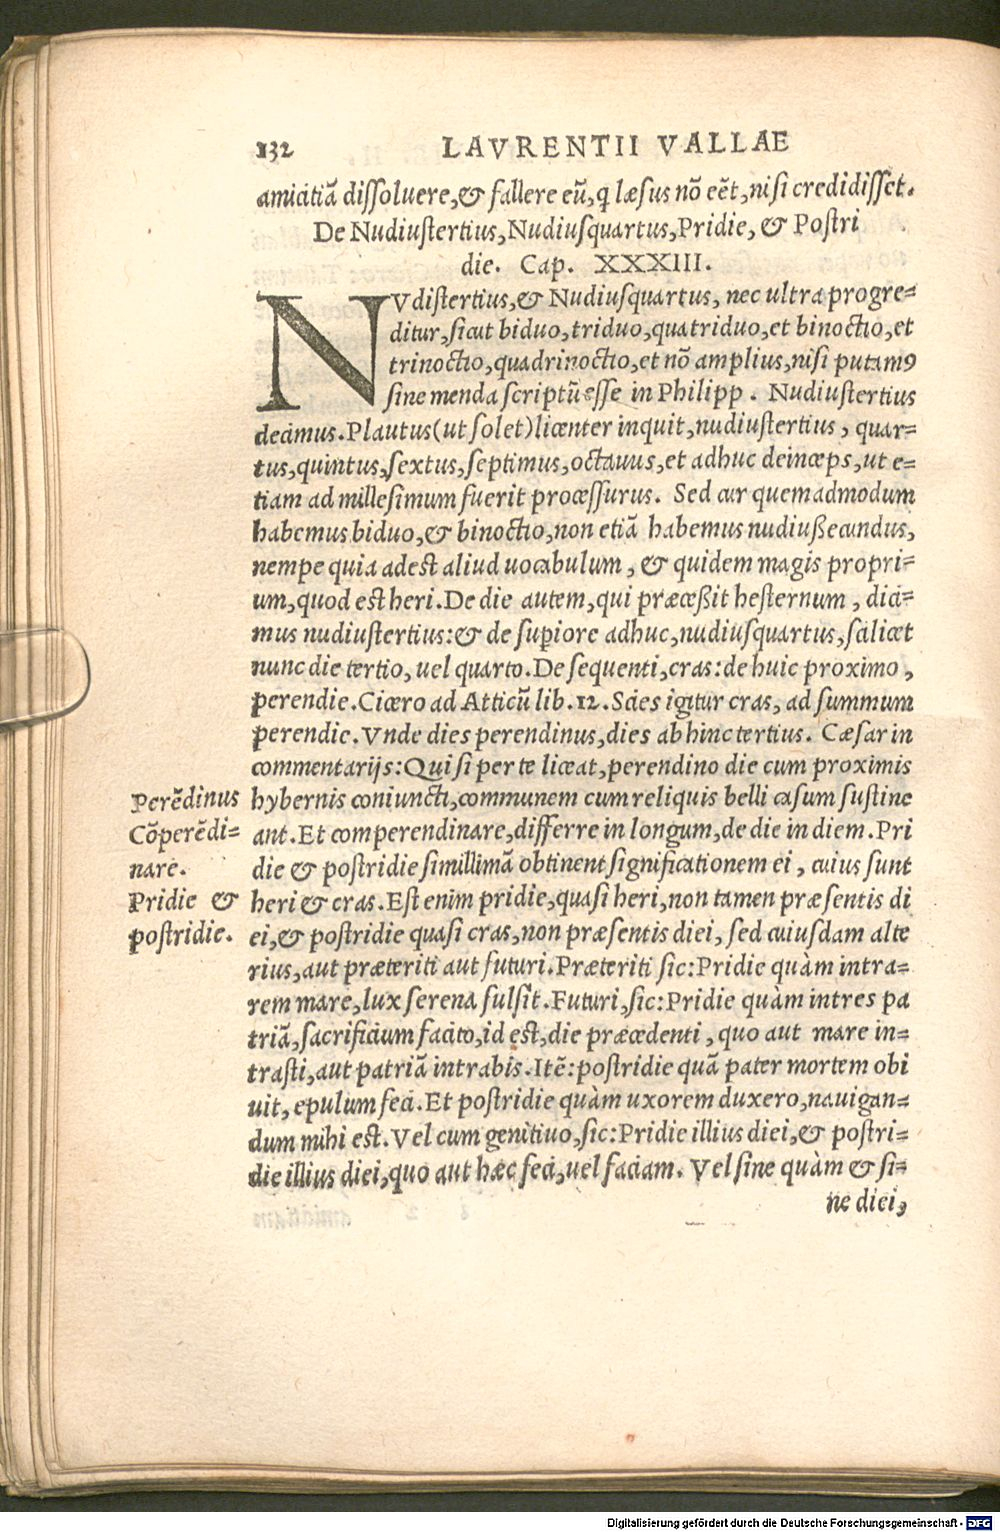 132 LAVRENTII VALLAE
amicitiã dissoluere,& fallere eũ, ꝗ læsus nõ eẽt, nisi credidisset.
De Nudiustertius, Nudiusquartus, Pridie, & Postri
die. Cap. XXXIII.
NVdistertius,& Nudiusquartus, nec ultra progre=
ditur, sicut biduo, triduo, quatriduo, et binoctio, et
trinoctio, quadrinoctio, et nõ amplius, nisi putamꝰ
sine menda scriptũ esse in Philipp. Nudiustertius
decimus. Plautus (ut solet) licenter inquit, nudiustertius, quar=
tus, quintus, sextus, septimus, octauus, et adhuc deinceps, ut e=
tiam ad millesimum fuerit processurus. Sed cur quemadmodum
habemus biduo,& binoctio, non etiã habemus nudiußecundus,
nempe quia adest aliud uocabulum, & quidem magis propri=
um, quod est heri. De die autem, qui præceßit hesternum, dici=
mus nudiustertius:& de supiore adhuc, nudiusquartus, scilicet
nunc die tertio, uel quarto. De sequenti, cras: de huic proximo,
perendie. Cicero ad Atticũ lib. 12. Scies igitur cras, ad summum
perendie. Vnde dies perendinus, dies abhinc tertius. Cæsar in
commentarijs: Qui si per te liceat, perendino die cum proximis
hybernis coniuncti, communem cum reliquis belli casum sustine
ant. Et comperendinare, differre in longum, de die in diem. Pri
die & postridie simillimã obtinent significationem ei, cuius sunt
heri & cras. Est enim pridie, quasi heri, non tamen præsentis di
ei,& postridie quasi cras, non præsentis diei, sed cuiusdam alte
rius, aut præteriti aut futuri. Præteriti sic: Pridie quàm intra=
rem mare, lux serena fulsit. Futuri, sic: Pridie quàm intres pa
triã, sacrificium facito, id est, die præcedenti, quo aut mare in=
trasti, aut patriã intrabis. Itẽ: postridie quã pater mortem obi
uit, epulum feci. Et postridie quàm uxorem duxero, nauigan=
dum mihi est. Vel cum genitiuo, sic: Pridie illius diei,& postri=
die illius diei, quo aut hæc feci, uel faciam. Vel sine quàm & si=
ne diei,
Perẽdinus
Cõperẽdi=
nare.
Pridie &
postridie.
Digitalisierung gefördert durch die Deutsche Forschungsgemeinschaft - DFG